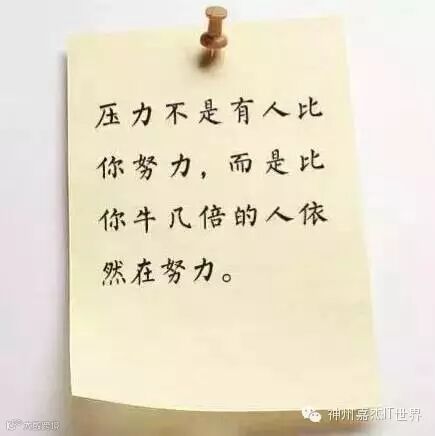 压力不是有人比
你努力，而是比
你牛几倍的人依
然在努力。
神州嘉杰IT世界